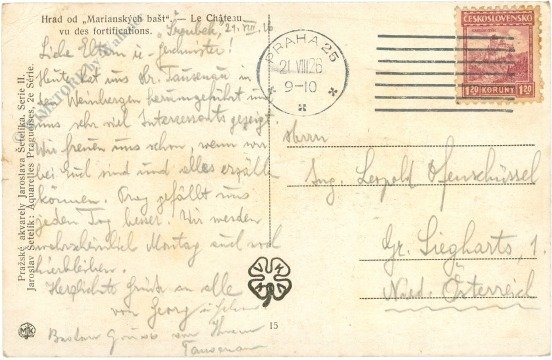 Hrad od „Marianských bašt“. — Le Château
vu des fortifications.
21. VIII. 26
Liebe Eltern u. Geschwister!
Heute hat uns Hr. Taussenau in
Weinbergen herumgeführt und
uns sehr viel Interessantes gezeigt.
Wir freuen uns schon, wenn wir
bei Euch sind und alles erzählen
können. Prag gefällt uns
jeden Tag besser. Wir werden
wahrscheinlich Montag auch noch
hierbleiben.
Herzlichste Grüße an alle
von Georg u.
Besten Gruss von Ihrem
Taussenau
Pražské akvarely Jaroslava Šetelíka, Serie II.
Jaroslav Šetelík: Aquarelles Praguoises, 2e Série.
15
PRAHA 25
21. VIII. 26
9-10
ČESKOSLOVENSKO
1.20 KORUNY 1.20
Herrn
Ing. Leopold Ofenschüssel
Gr. Siegharts, 1.
Nied. Österreich